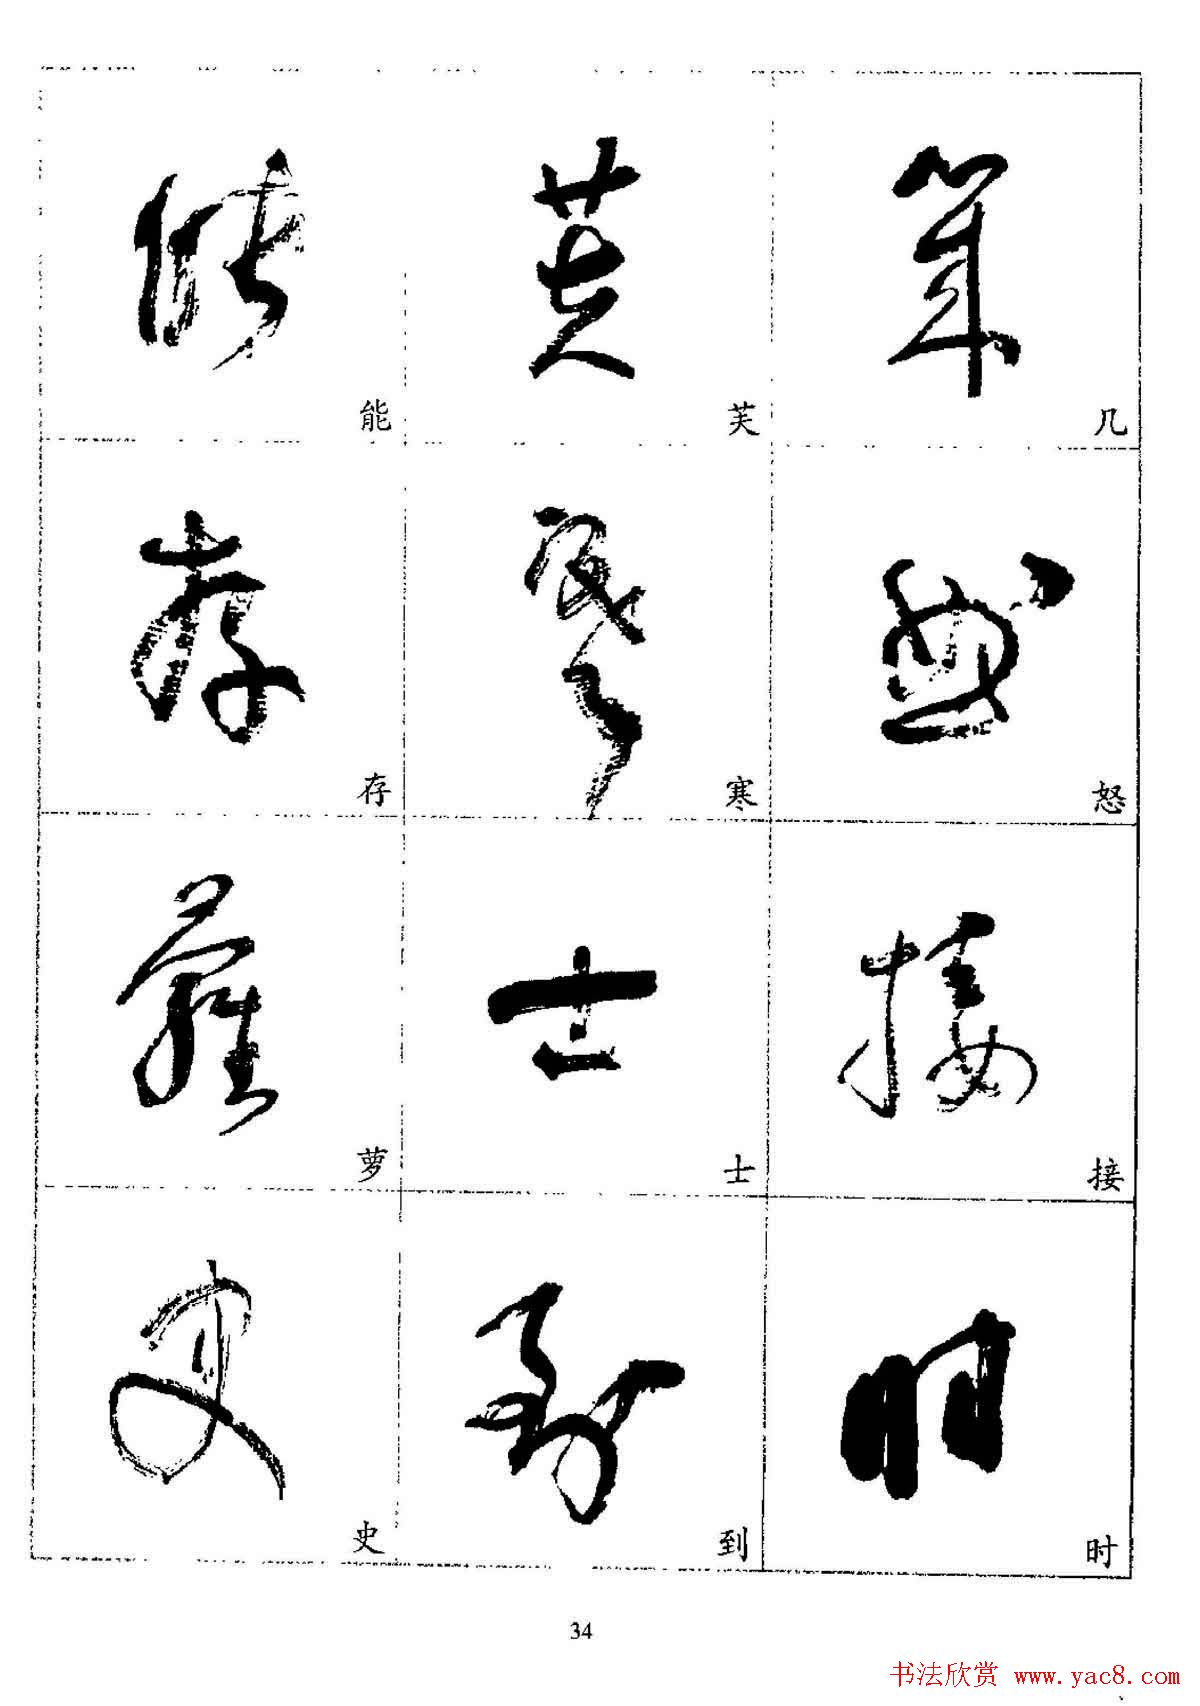 能 芙 几
存 寒 怒
萝 士 接
史 到 时
34
书法欣赏 www.yac8.com